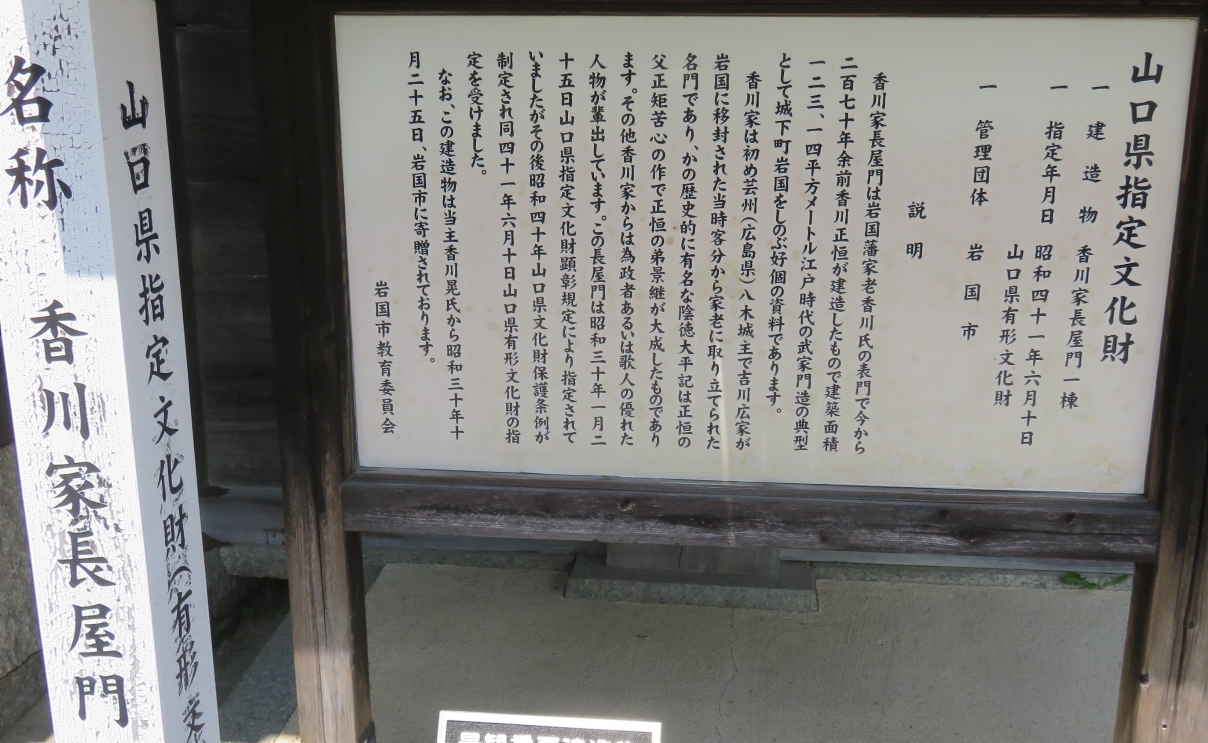 山口県指定文化財
一 建造物 香川家長屋門一棟
一 指定年月日 昭和四十一年六月十日
山口県有形文化財
一 管理団体 岩国市
説明
香川家長屋門は岩国藩家老香川氏の表門で今から
二百七十年余前香川正恒が建造したもので建築面積
一二三、一四平方メートル江戸時代の武家門造の典型
として城下町岩国をしのぶ好個の資料であります。
香川家は初め芸州(広島県)八木城主で吉川広家が
岩国に移封された当時客分から家老に取り立てられた
名門であり、かの歴史的に有名な陰徳太平記は正恒の
父正矩苦心の作で正恒の弟景継が大成したものであり
ます。その他香川家からは為政者あるいは歌人の優れた
人物が輩出しています。この長屋門は昭和三十年一月二
十五日山口県指定文化財顕彰規定により指定されて
いましたがその後昭和四十年山口県文化財保護条例が
制定され同四十一年六月十日山口県有形文化財の指
定を受けました。
なお、この建造物は当主香川晃氏から昭和三十年十
月二十五日、岩国市に寄贈されております。
岩国市教育委員会
山口県指定文化財(有形文
名称 香川家長屋門